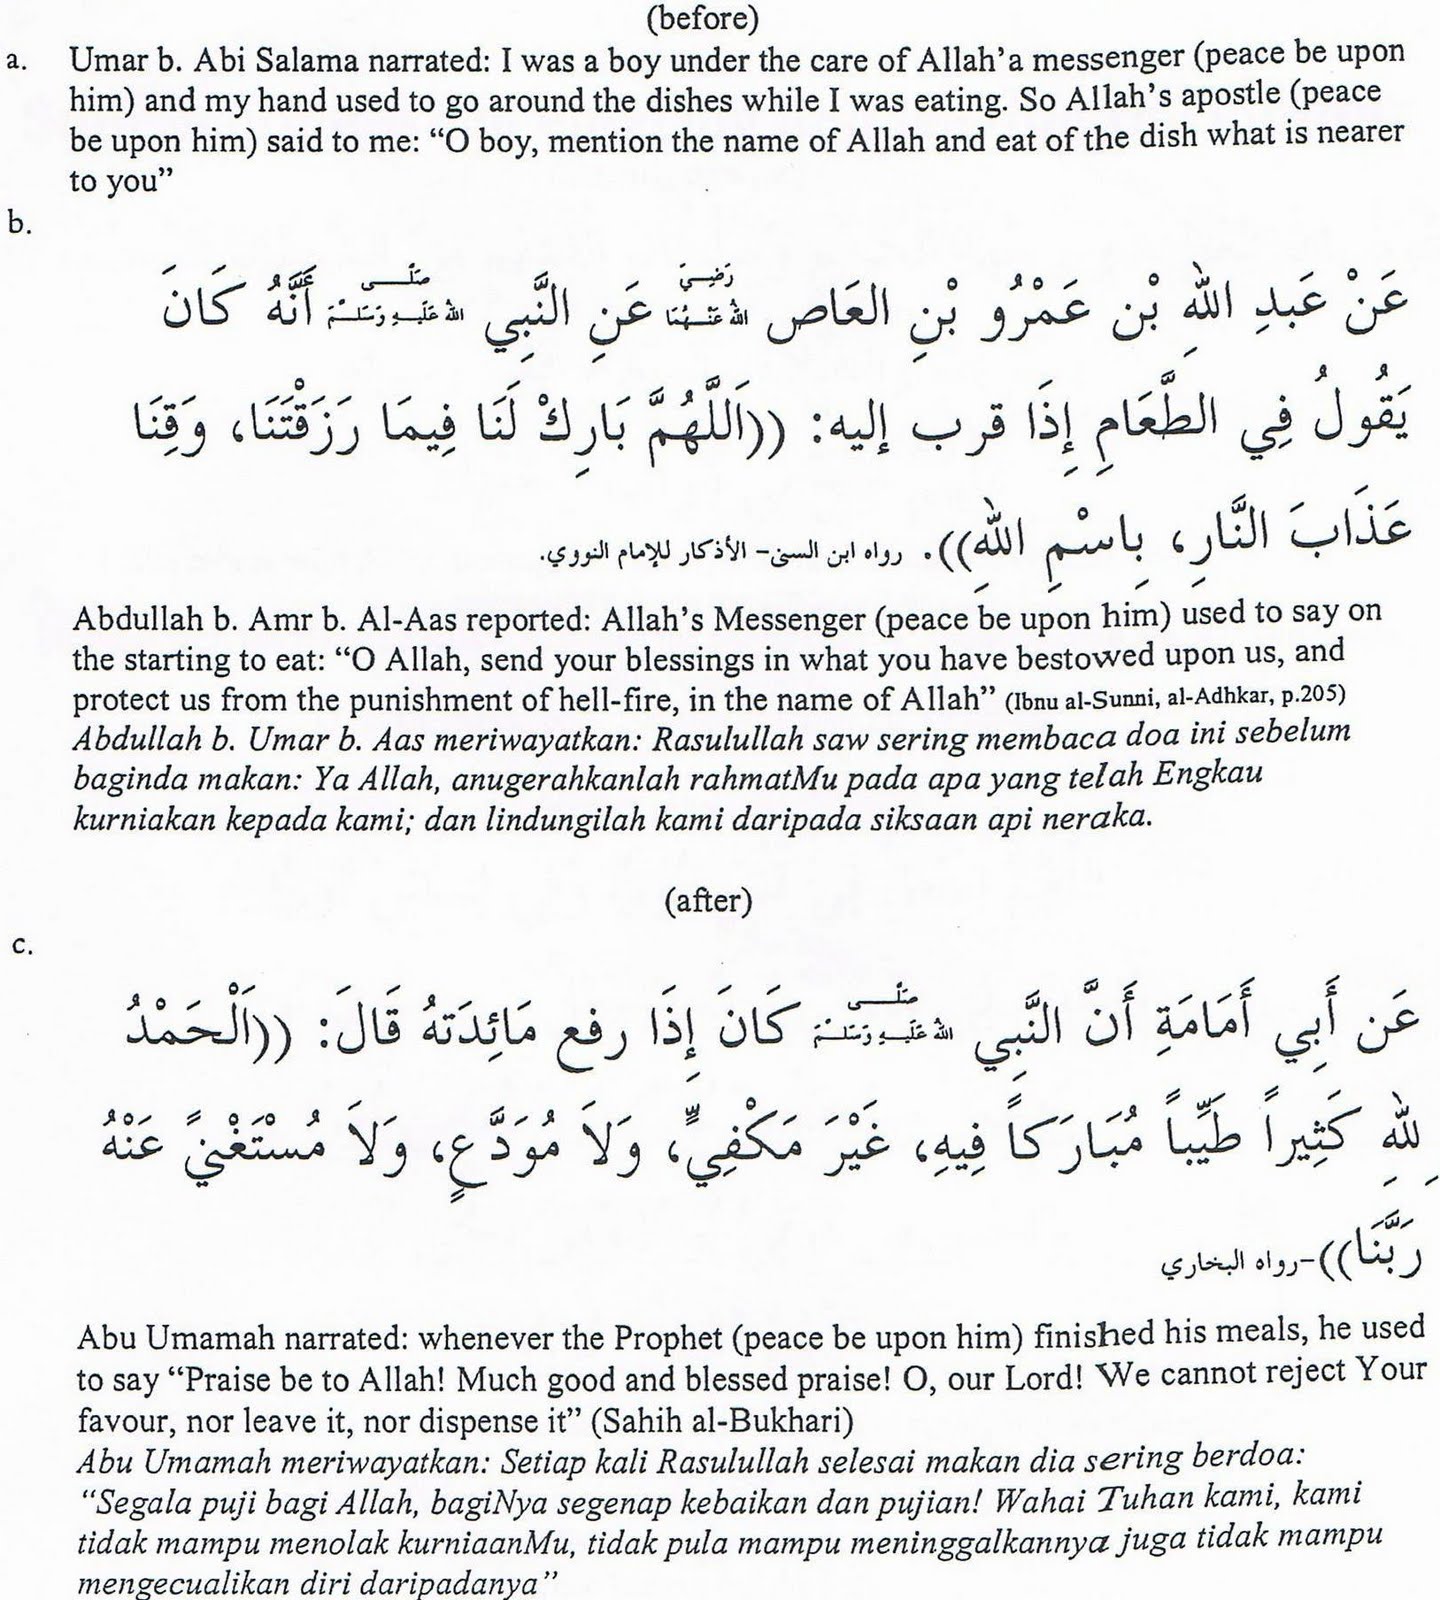 (before)
a. Umar b. Abi Salama narrated: I was a boy under the care of Allah'a messenger (peace be upon
him) and my hand used to go around the dishes while I was eating. So Allah's apostle (peace
be upon him) said to me: “O boy, mention the name of Allah and eat of the dish what is nearer
to you”
b.
عَنْ عَبدِ اللهِ بْن عَمْرُو بْنِ العَاص رَضِيَ اللهُ عَنْهُمَا عَنِ النَّبِي صَلَّى اللهُ عَلَيهِ وَسَلَّمَ أَنَّهُ كَانَ
يَقُولُ فِي الطَّعَامِ إِذَا قرب إليه: ((اَللَّهُمَّ بَارِكْ لَنَا فِيمَا رَزَقْتَنَا، وَقِنَا
عَذَابَ النَّارِ، بِاسْمِ اللهِ)). رواه ابن السنى- الأذكار للإمام النووي.
Abdullah b. Amr b. Al-Aas reported: Allah's Messenger (peace be upon him) used to say on
the starting to eat: “O Allah, send your blessings in what you have bestowed upon us, and
protect us from the punishment of hell-fire, in the name of Allah” (Ibnu al-Sunni, al-Adhkar, p.205)
Abdullah b. Umar b. Aas meriwayatkan: Rasulullah saw sering membaca doa ini sebelum
baginda makan: Ya Allah, anugerahkanlah rahmatMu pada apa yang telah Engkau
kurniakan kepada kami; dan lindungilah kami daripada siksaan api neraka.
(after)
c.
عَن أَبِي أَمَامَةِ أَنَّ النَّبِي صَلَّى اللهُ عَلَيهِ وَسَلَّمَ كَانَ إِذَا رفع مَائِدَتهُ قَالَ: ((اَلْحَمْدُ
لِلهِ كَثِيراً طَيِّباً مُبَارَكاً فِيهِ، غَيْرَ مَكْفِيٍّ، وَلاَ مُوَدَّعٍ، وَلاَ مُسْتَغْنيً عَنْهُ
رَبَّنَا))-رواه البخاري
Abu Umamah narrated: whenever the Prophet (peace be upon him) finished his meals, he used
to say “Praise be to Allah! Much good and blessed praise! O, our Lord! We cannot reject Your
favour, nor leave it, nor dispense it” (Sahih al-Bukhari)
Abu Umamah meriwayatkan: Setiap kali Rasulullah selesai makan dia sering berdoa:
“Segala puji bagi Allah, bagiNya segenap kebaikan dan pujian! Wahai Tuhan kami, kami
tidak mampu menolak kurniaanMu, tidak pula mampu meninggalkannya juga tidak mampu
mengecualikan diri daripadanya”